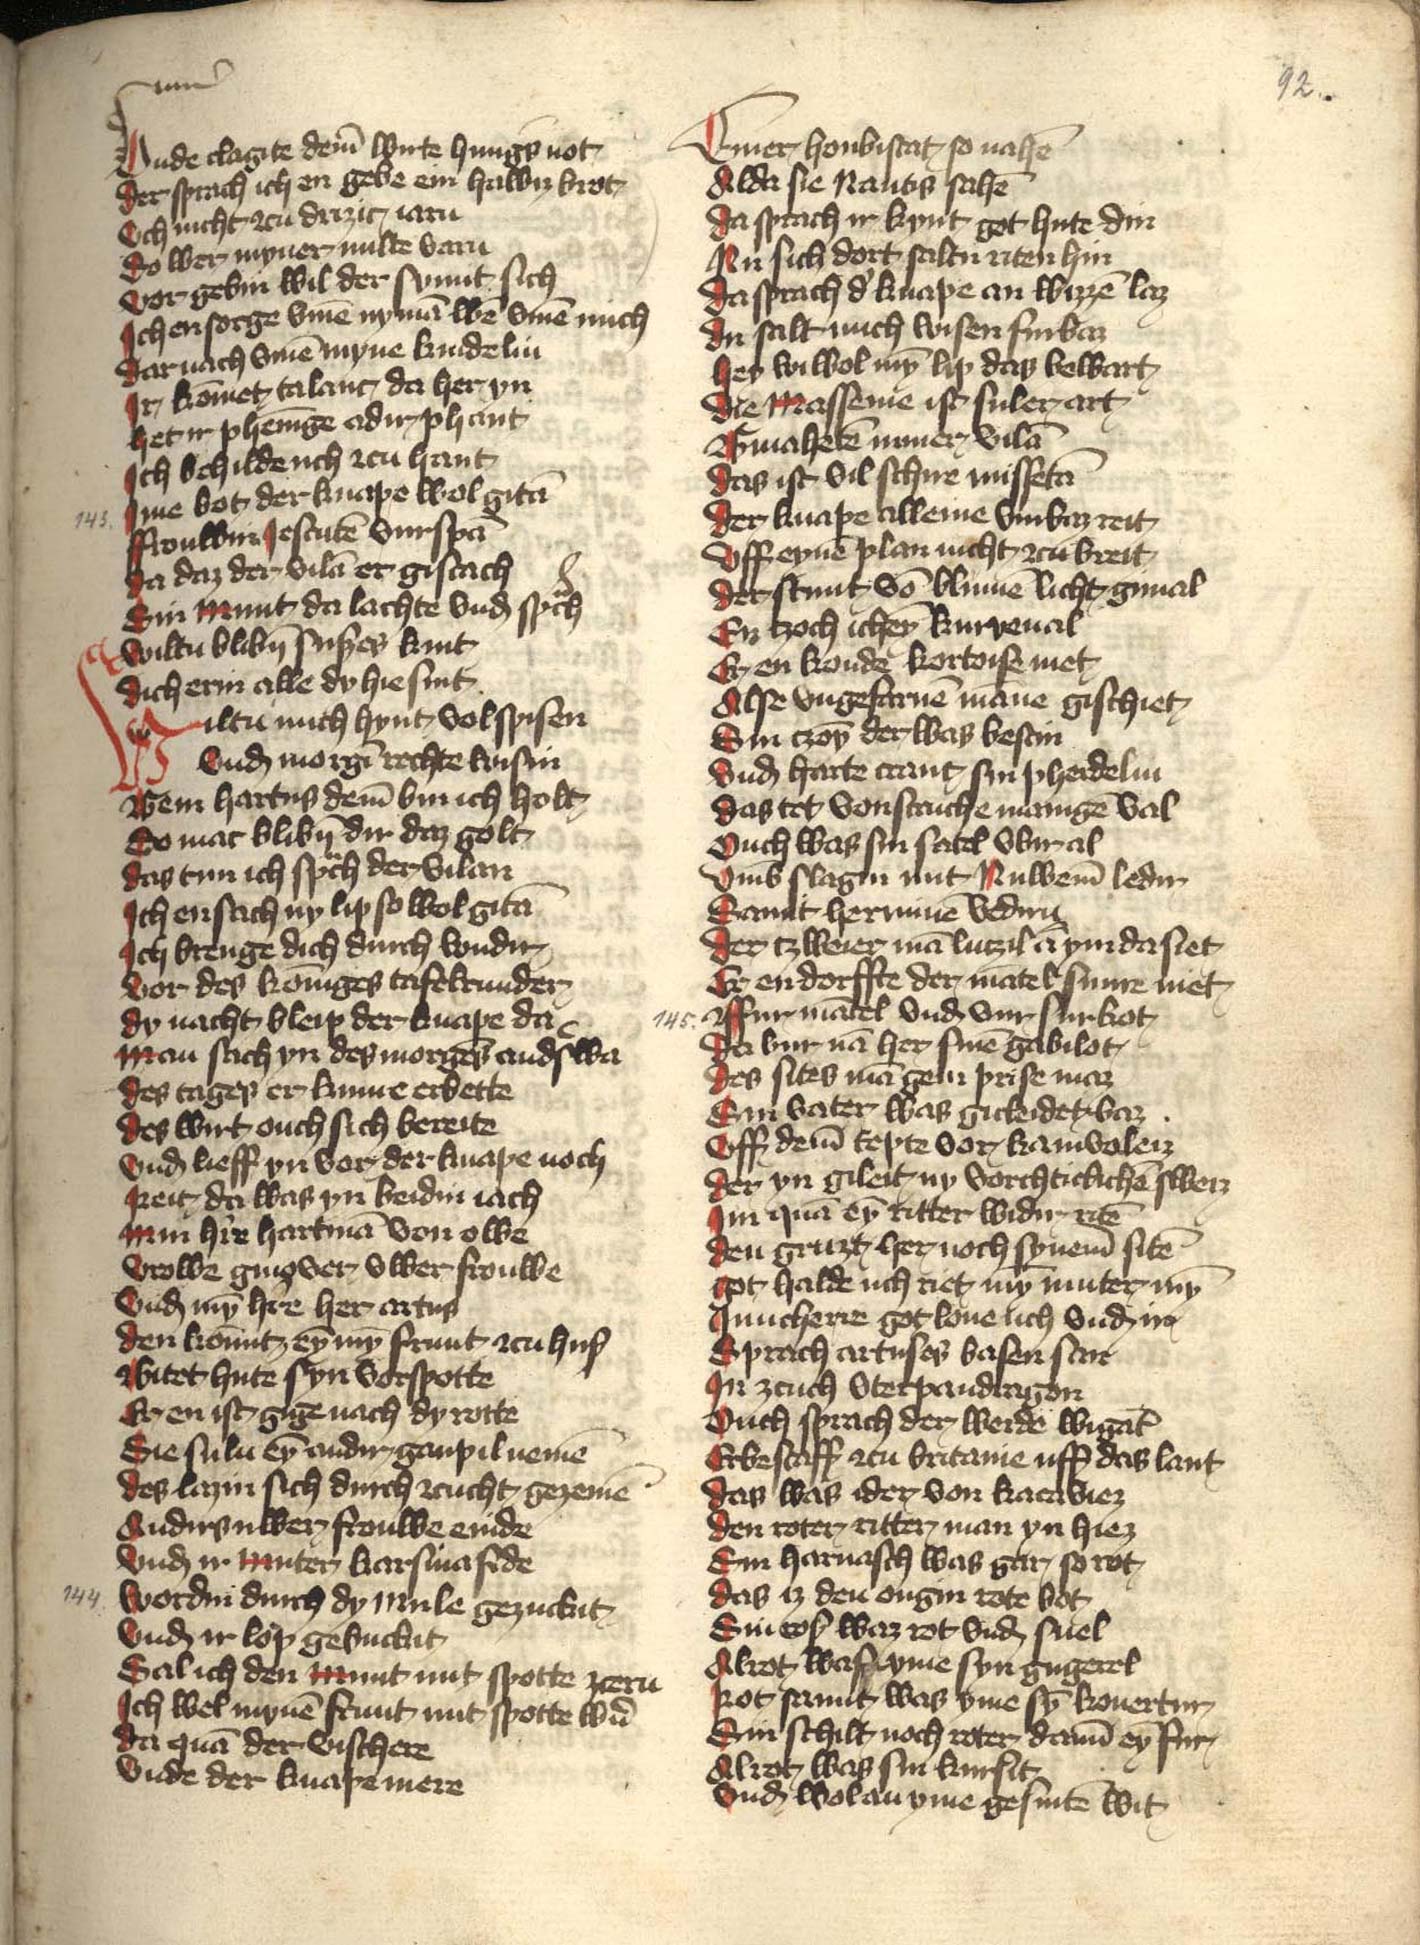 92.
Vnde clagite dem̄ wirte hung̾s not
der sprach ich en gebe ein halbiz brot
Vch nicht zcu drizic iarn
So wer myner milte varn
vor gebin wil der symit sich
Ich en sorge vm̄e nymā wē vm̄e mich
dar nach vm̄e myne kindelin
Ir komet talanc da her yn
het ir phen̄inge adir phant
Ich behilde uch zcu hant
143.
Ime bot der knape wol gitā
ffrouwin Iescutē vurspā
da daz der vilā er gisach
Sin Munt da lachte vnd sp̾ch
wiltu blibȳ suses kint
dich erin alle dy hie sint
Wiltu mich hynt wol spisen
Vnd morgī rechte wisin
Kein hartus dem̄ bin ich holt
So mac blibȳ dir daz golt
das tun ich sp̾ch der vilan
Ich en sach ny lip so wol gitā
Ich brenge dich durch wndir
vor des kon̄iges tafelrunder
dy nacht bleip der knape da
Man sach yn des morgēs and̾swa
des tages er kume erbeite
des wirt ouch sich bereite
Vnd lieff yn vor der knape noch
Reit da was yn beidin iach
Min h̾re hartmā von owe
vrowe ginover vwer frouwe
Vnd mȳ h̾re her artus
den kom̄t eȳ mȳ frunt zcu hus
Bitet hute syn vorspotte
Er en ist gige nach dy rotte
Sie sulu eȳ andir ganpil nemē
des lazin sich durch zcucht gezemē
Andirs uwer frouwe enide
Vnd ir Muter karsinafide
144.
wordin durch dy Mule gezuckit
Vnd ir lop gebuckit
Sal ich den Munt mit spotte zcern
Ich wel mynē frunt mit spotte w̾n
da quā der vischere
Vnde der knape mere
Einer houbistat so nahē
Alda sie Nantis sahē
da sprach ir kynt got hute din
Nu sich dort saltu riten hin
da sprach d̾ knape an wizzē laz
du salt mich wisen furbaz
hey wi wol mȳ lip das bewart
die Massenie ist suler art
Gnahetē ymmer vilā
das ist vil schire missetā
der knape alleine vurbaz reit
Vff eynē plan nicht zcu breit
der stunt vō blumē licht gimal
En tzoch ichey kurvenal
Er en konde kortoise niet
Alse vngefarnē māne gischiet
Sin tzoȳ der was bestin
Vnd harte cranc syn pherdelin
das tet von struche manigē val
Ouch was sin satel vbir al
Vm̄b slagin mit Nuwem̄ ledir
Samit herminē vedirn
der tzweier mā lutzil ā ym da siet
Er en dorffte der mātel snure niet
145.
ffur mātel vnd vur surkot
da vur nā her sinē gabilot
des sites mā gein prise maz
Sin vater was gicleidet baz
Vff dem̄ tepte vor kamvoleiz
der yn gileit ny vorchticlichē sweiz
Im quā eȳ ritter widir ritē
den gruzt her noch synem̄ sitē
got halde uch riet mȳ muter mȳ
Iuncherre got lone uch vnd ir
Sprach artuses basen sun
In zcuch vterpandragon
Ouch sprach der werde wigāt
Erbeschaff zcu britanie uff das lant
das was ider von kacaviez
den roter ritter man yn hiez
Sin harnasch was gar so rot
das iz den ougin rote bot
Sin ros waz rot vnd snel
Alrot was yme syn gugerel
Rot samit was yme sȳ kovertur
Sin schilt noch roter dann̄ eȳ fur
Alrot was sin kursit
Vnd wol an yme gesnitē wit